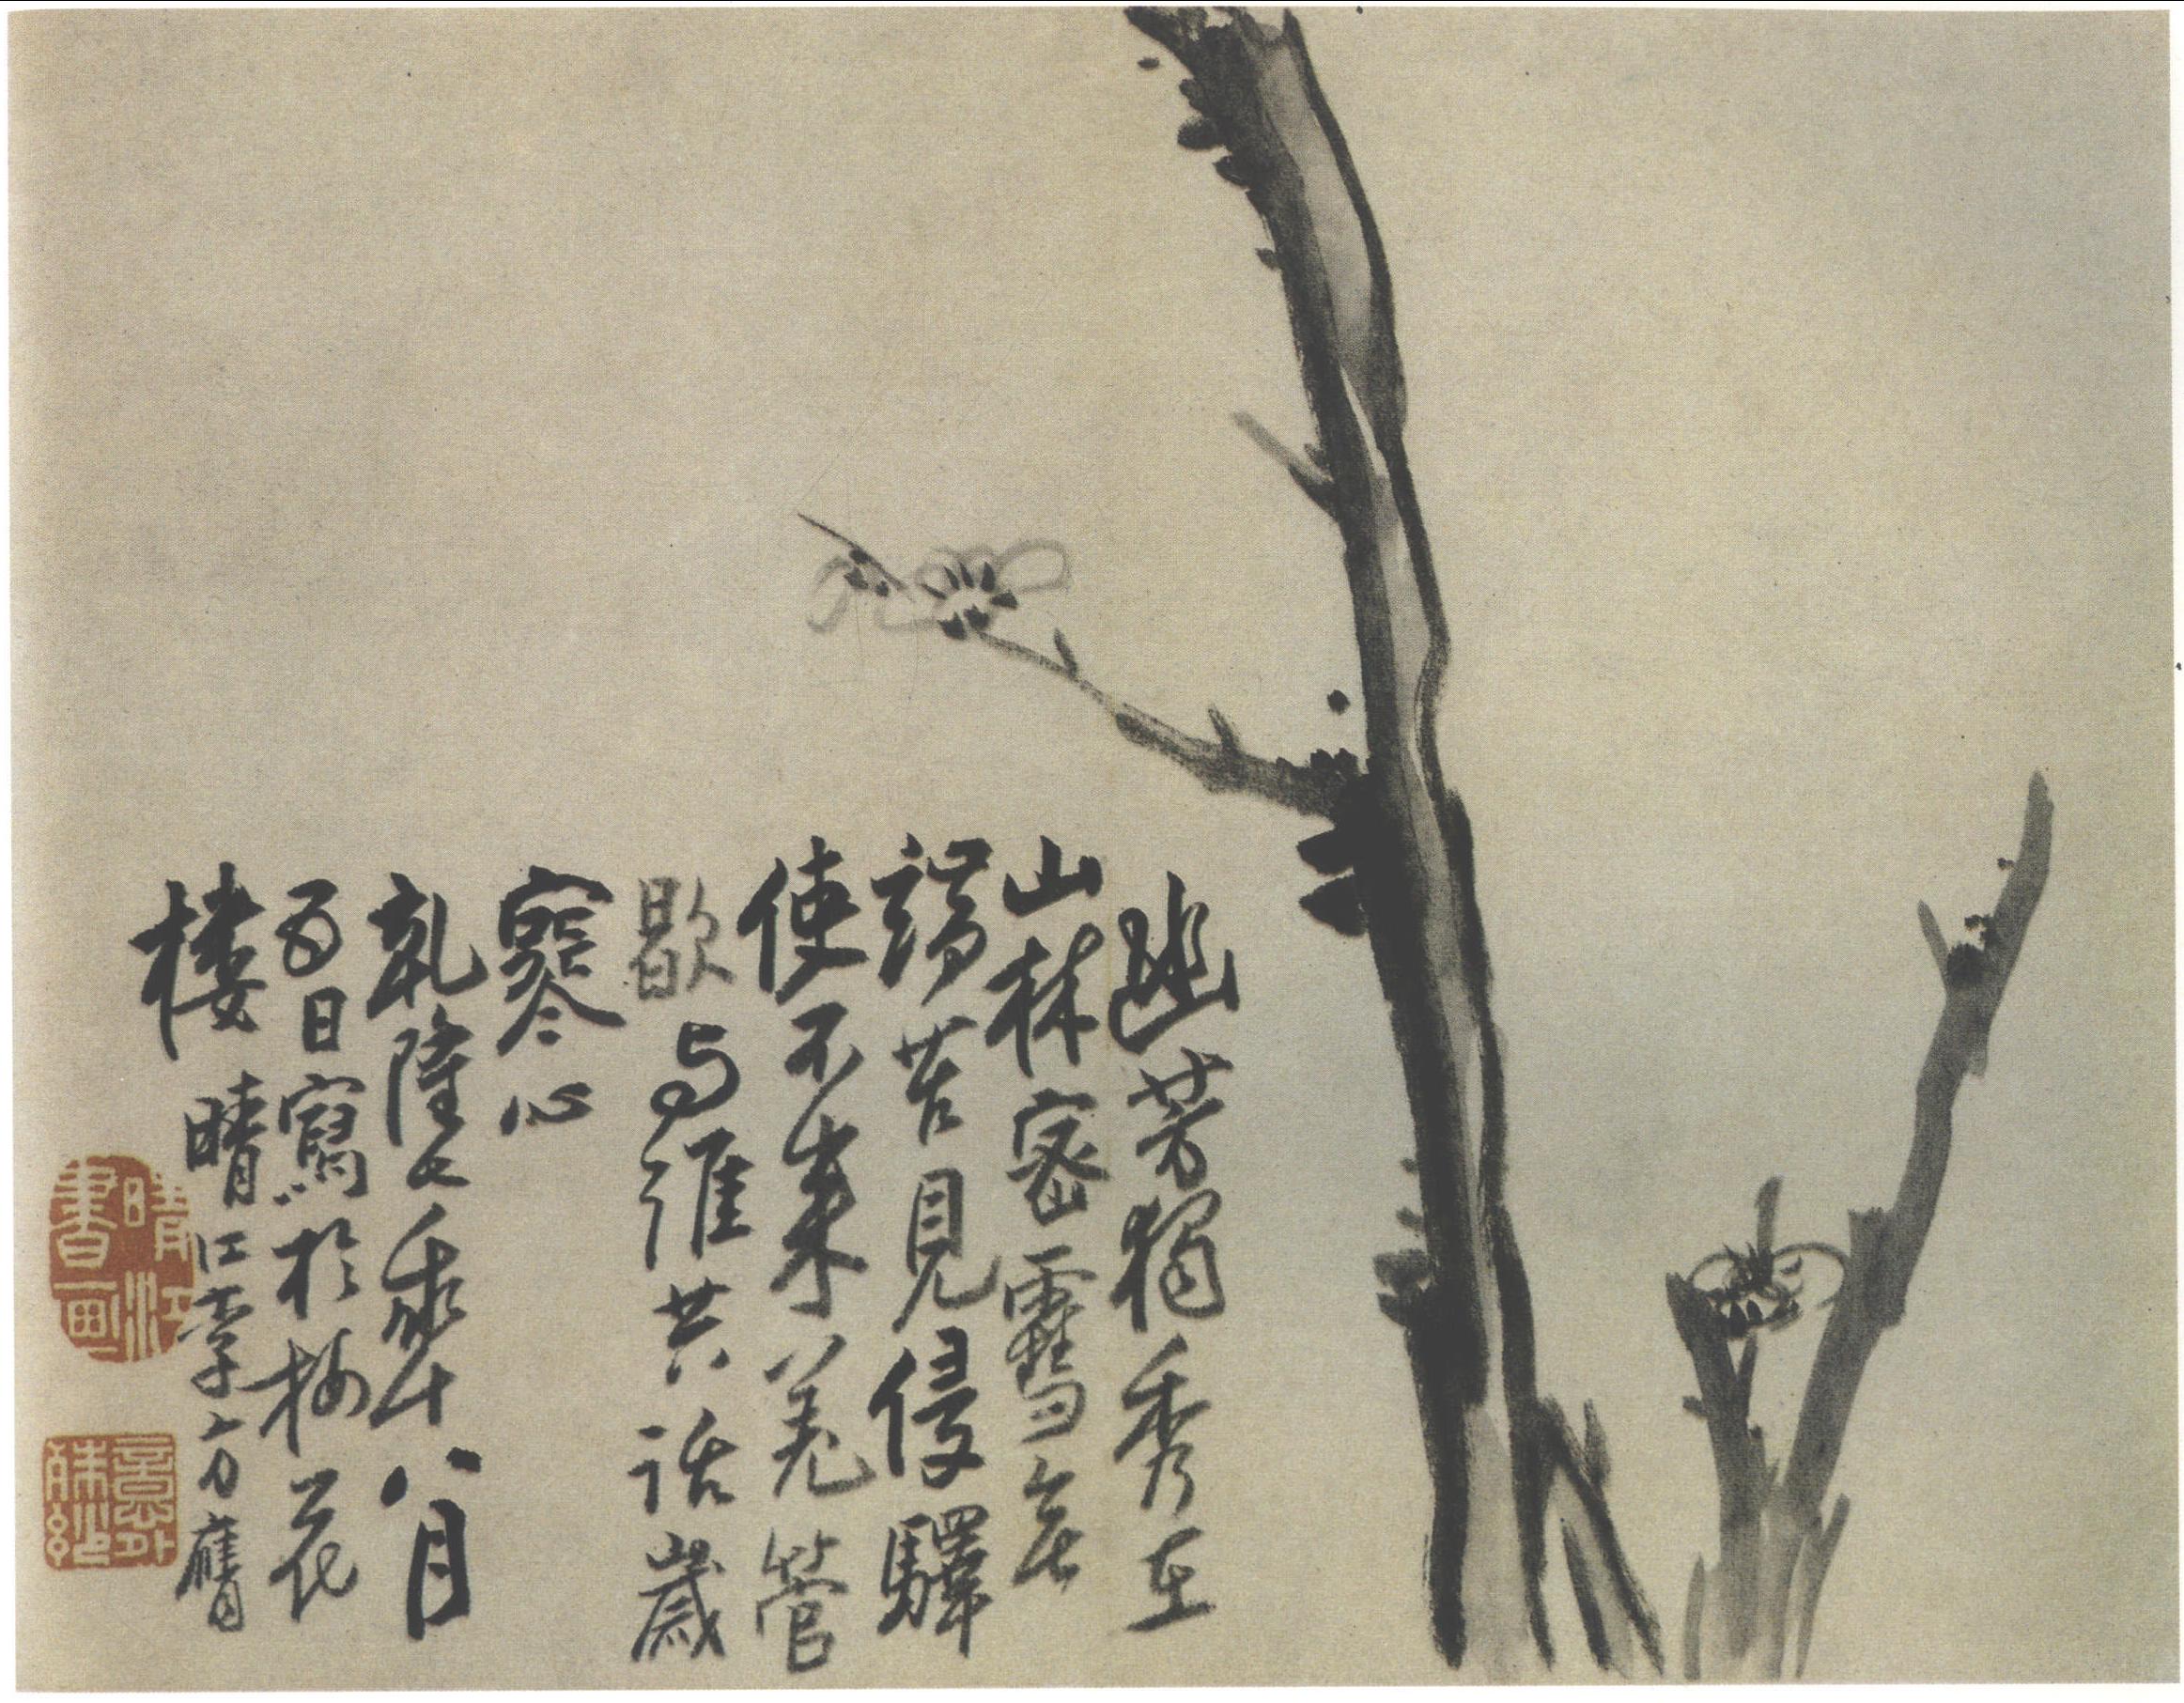 幽芳獨秀在
山林密雪無
端苦見侵驛
使不來羌管
歇与誰共話歲
寒心
乾隆七秊八月
五日寫於梅花
樓 晴江李方膺
晴江書画